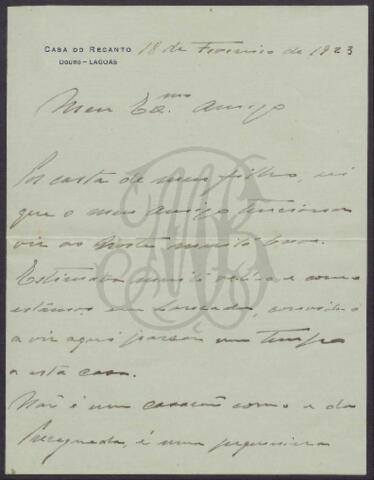 CASA DO RECANTO
DOURO – LAGOAS
18 de Fevereiro de 1923
Meu Exmo. Amigo
Por carta de meu filho, vi
que o meu Amigo tenciona
vir ao Norte muito breve.
Estimava muito vêl-o e como
estâmos em
a vir aqui passar um tempo
a esta casa.
Não é um casarão como o da
é uma pequenina